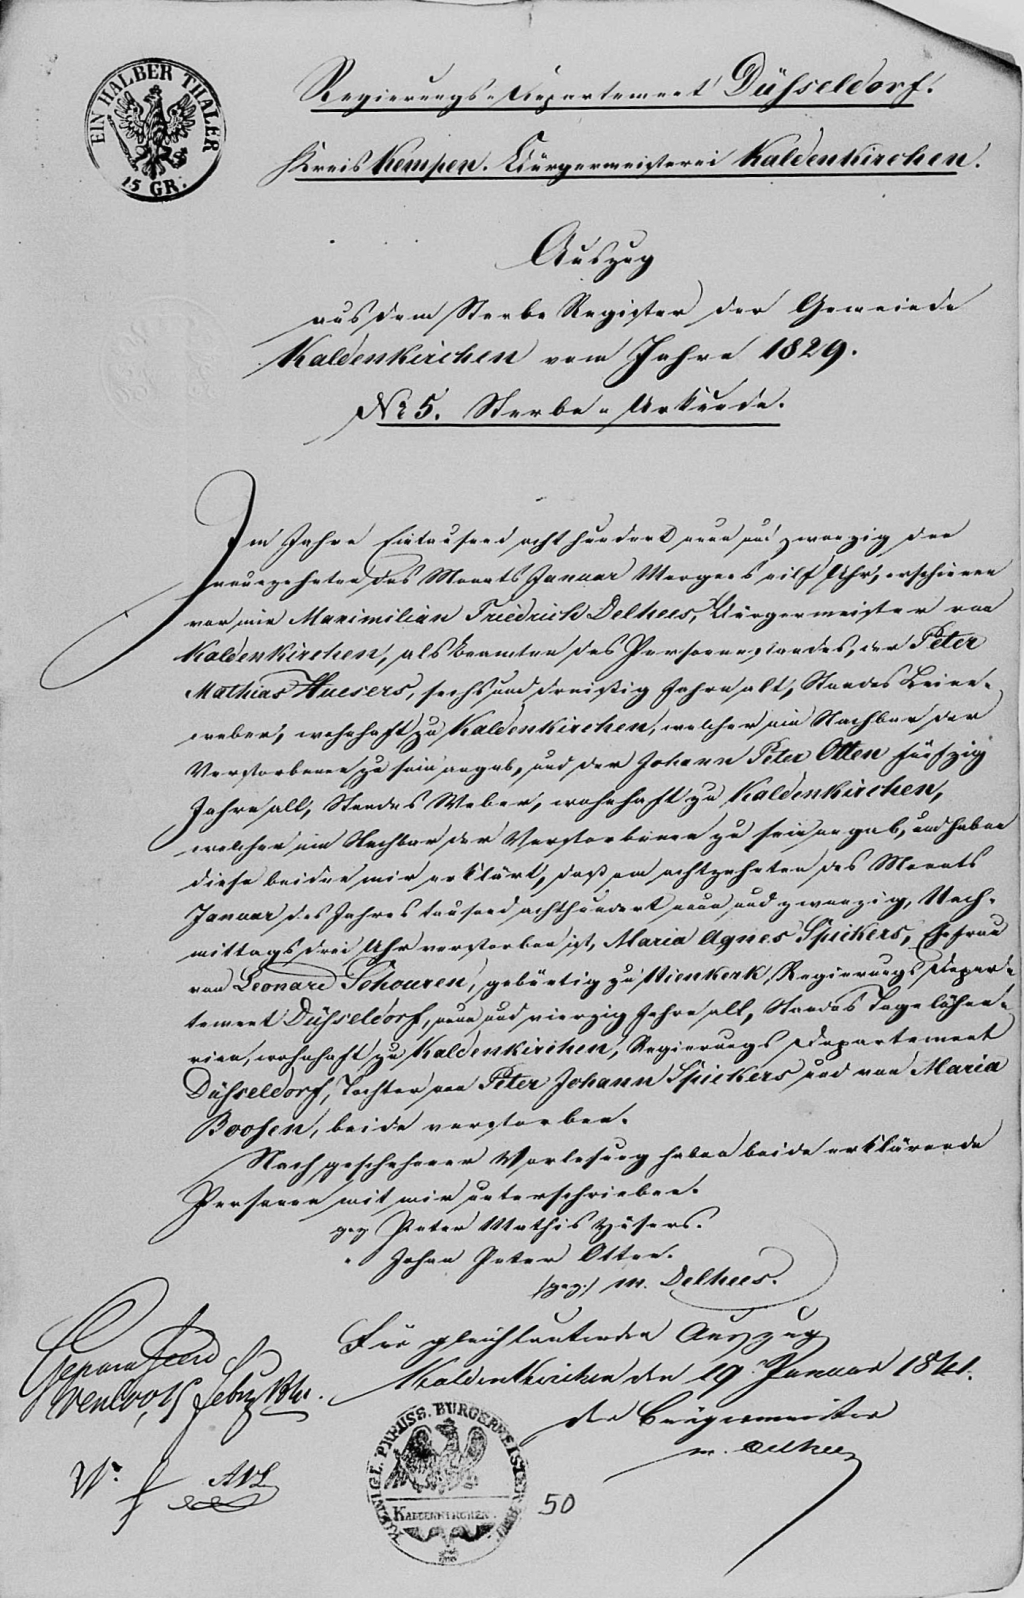 EIN HALBER THALER
15 GR.
Regierungs-Departement Düsseldorf.
Kreis Kempen. Bürgermeisterei Kaldenkirchen.
Auszug
aus dem Sterbe Register der Gemeinde
Kaldenkirchen vom Jahre 1829.
No 5. Sterbe-Urkunde.
Im Jahre Eintausend acht hundert neun und zwanzig den
neunzehnten des Monats Januar Morgens eilf Uhr, erschienen
vor mir Maximilian Friedrich Delhees, Bürgermeister von
Kaldenkirchen, als Beamten des Personenstandes, der Peter
Mathias Huesers, sechs und dreißig Jahre alt, Standes Leine-
weber, wohnhaft zu Kaldenkirchen, welcher ein Nachbar der
Verstorbenen zu sein angab, und der Johann Peter Otten fünfzig
Jahre alt, Standes Weber, wohnhaft zu Kaldenkirchen,
welcher ein Nachbar der Verstorbenen zu sein angab, und haben
diese beiden mir erklärt, daß am achtzehnten des Monats
Januar des Jahres tausend achthundert neun und zwanzig, Nach-
mittags drei Uhr verstorben ist, Maria Agnes Spickers, Ehefrau
von Leonard Schouren, gebürtig zu Nienkerk, Regierungs Depar-
tement Düsseldorf, neun und vierzig Jahre alt, Standes Tagelöhne-
rien, wohnhaft zu Kaldenkirchen, Regierungs Departement
Düsseldorf, Tochter von Peter Johann Spickers und von Maria
Boosen, beide verstorben.
Nach geschehener Vorlesung haben beide erklärende
Personen mit mir unterschrieben.
gez Peter Mathis Hüsers.
" Johan Peter Otten.
(gez.) M. Delhees.
Für gleichlautenden Auszug
Kaldenkirchen den 19 Januar 1841.
der Bürgermeister
M. Delhees
Venloo, 15 febry
KÖNIGL. PREUSS. BÜRGERMEISTEREI
KALDENKIRCHEN.
50